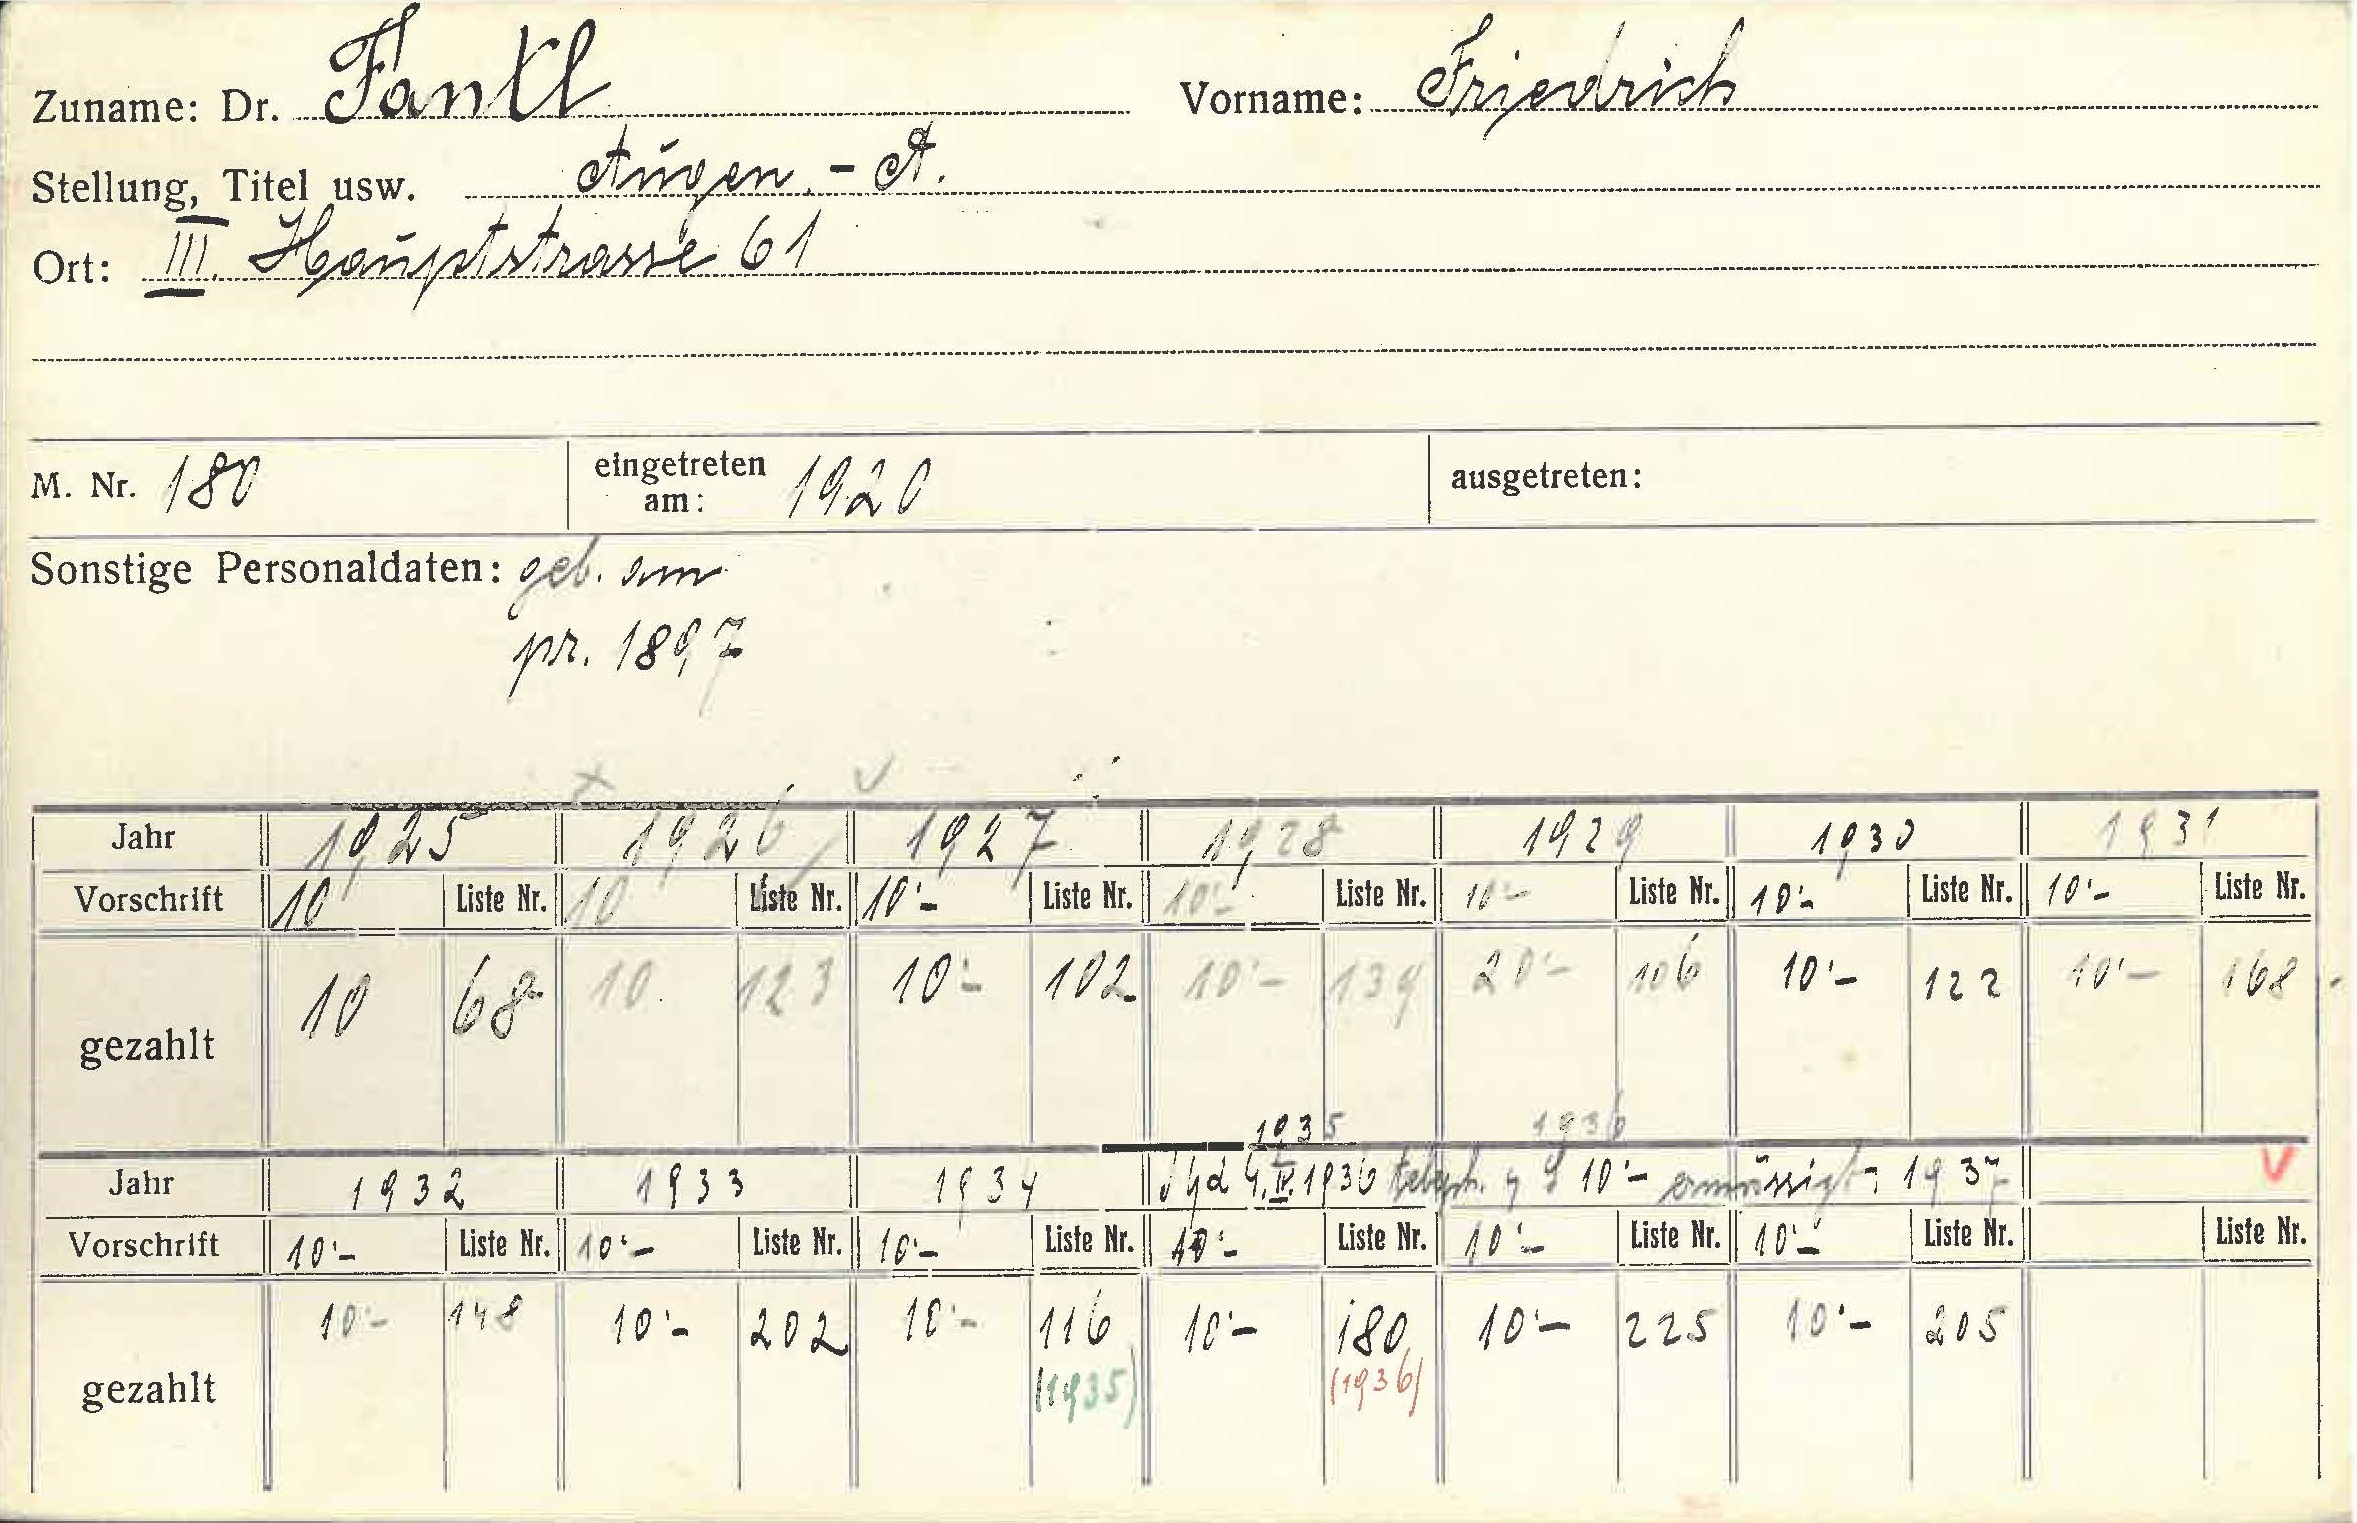 Zuname: Dr. Fantl Vorname: Friedrich
Stellung, Titel usw. Augen.-A.
Ort: III. Hauptstrasse 61
M. Nr. 180 eingetreten am: 1920 ausgetreten:
Sonstige Personaldaten: geb. am
pr. 1897
Jahr 1925 1926 1927 1928 1929 1930 1931
Vorschrift 10 Liste Nr. 10 Liste Nr. 10'- Liste Nr. 10'- Liste Nr. 10'- Liste Nr. 10'- Liste Nr. 10'- Liste Nr.
gezahlt 10 68 10. 123 10'- 102 10'- 139 20'- 106 10'- 122 10'- 168
1935 1936
Jahr 1932 1933 1934 4.IV.1936 10'- ermässigt 1937 V
Vorschrift 10'- Liste Nr. 10'- Liste Nr. 10'- Liste Nr. 10'- Liste Nr. 10'- Liste Nr. 10'- Liste Nr. Liste Nr.
gezahlt 10'- 148 10'- 202 10'- 116 10'- 180 10'- 225 10'- 205
(1935) (1936)